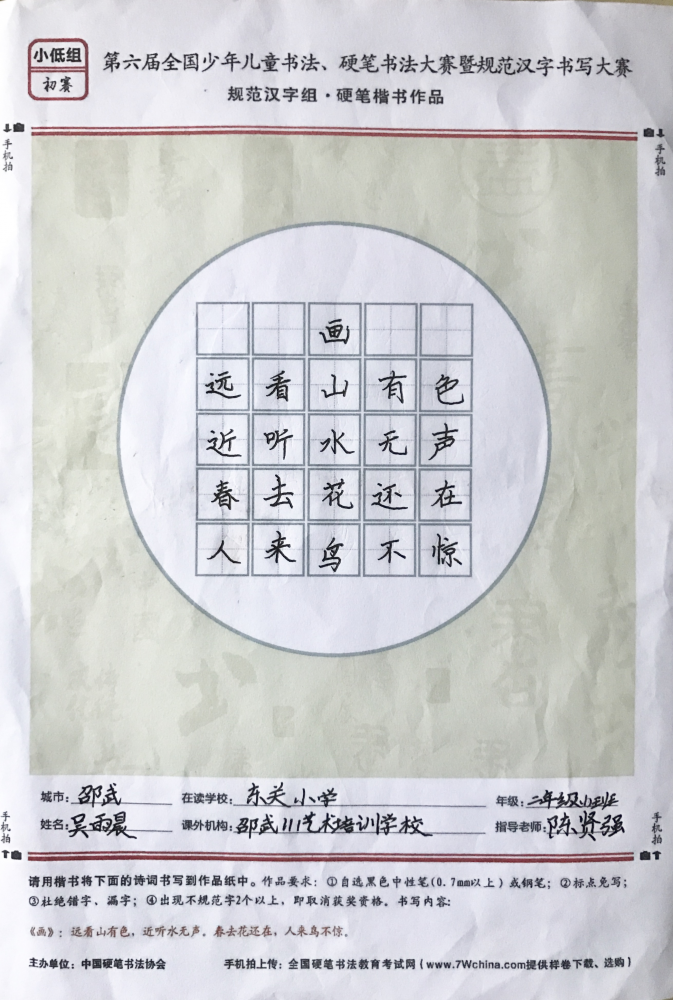 小低组
初赛
第六届全国少年儿童书法、硬笔书法大赛暨规范汉字书写大赛
规范汉字组·硬笔楷书作品
手机拍
手机拍
画
远看山有色
近听水无声
春去花还在
人来鸟不惊
城市：邵武 在读学校：东关小学 年级：二年级小班
姓名：吴雨晨 课外机构：邵武111艺术培训学校 指导老师：陈贤强
手机拍
手机拍
请用楷书将下面的诗词书写到作品纸中。作品要求：①自选黑色中性笔(0.7mm以上)或钢笔；②标点免写；
③杜绝错字、漏字；④出现不规范字2个以上，即取消获奖资格。书写内容：
《画》：远看山有色，近听水无声。春去花还在，人来鸟不惊。
主办单位：中国硬笔书法协会 手机拍上传：全国硬笔书法教育考试网（www.7Wchina.com提供样卷下载、选购）